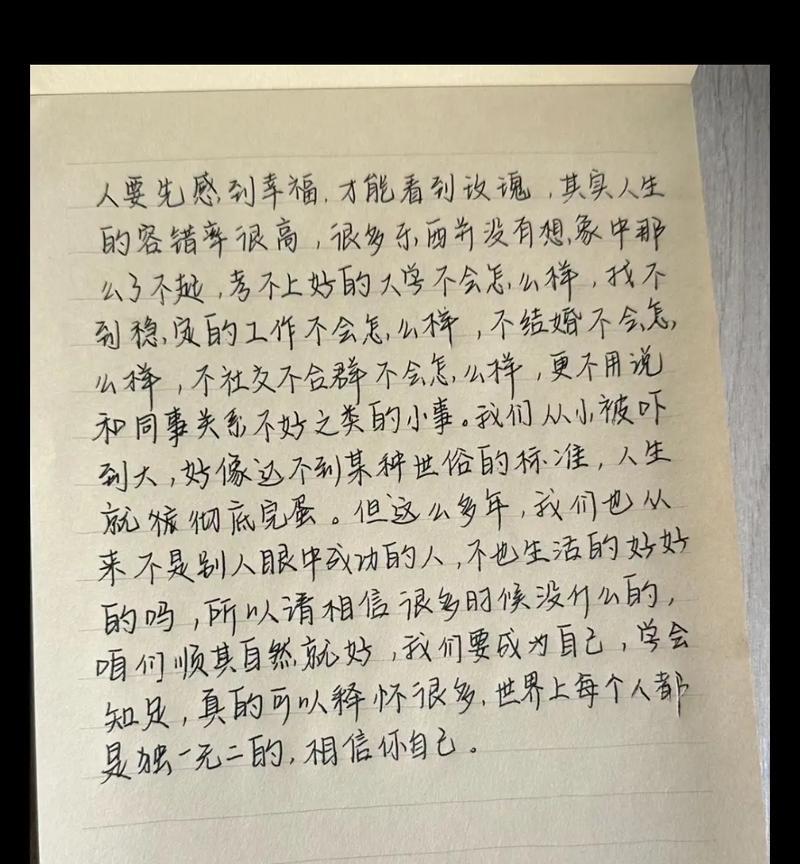 人要先感到幸福，才能看到玫瑰，其实人生
的容错率很高，很多东西并没有想象中那
么了不起，考不上好的大学不会怎么样，找不
到稳定的工作不会怎么样，不结婚不会怎
么样，不社交不合群不会怎么样，更不用说
和同事关系不好之类的小事。我们从小被吓
到大，好像达不到某种世俗的标准，人生
就彻底完蛋。但这么多年，我们也从
来不是别人眼中成功的人，不也生活的好好
的吗，所以请相信很多时候没什么的，
咱们顺其自然就好，我们要成为自己，学会
知足，真的可以释怀很多，世界上每个人都
是独一无二的，相信你自己。